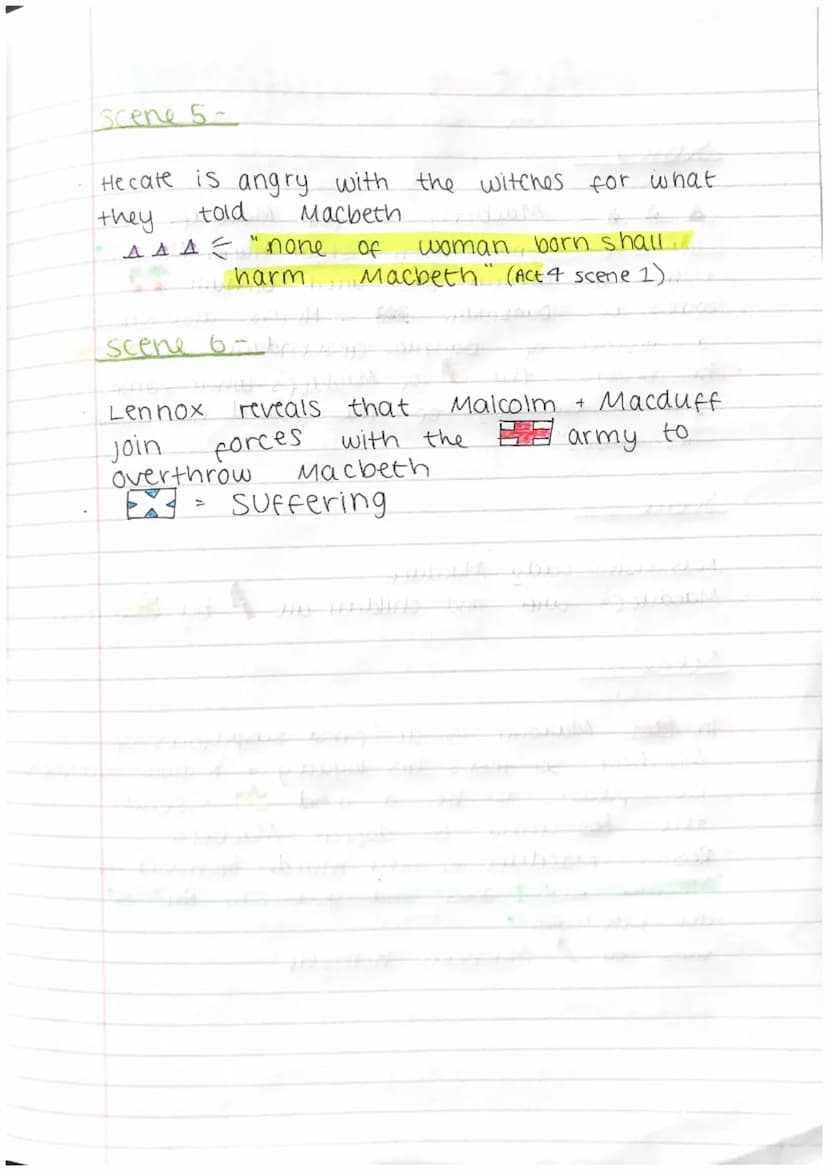 Scene 5 -
Hecate is angry with the witches for what
they told Macbeth
"none of woman born shall
harm Macbeth" (Act 4 scene 1)
Scene 6 -
Lennox reveals that Malcolm + Macduff
join forces with the army to
overthrow Macbeth
= suffering